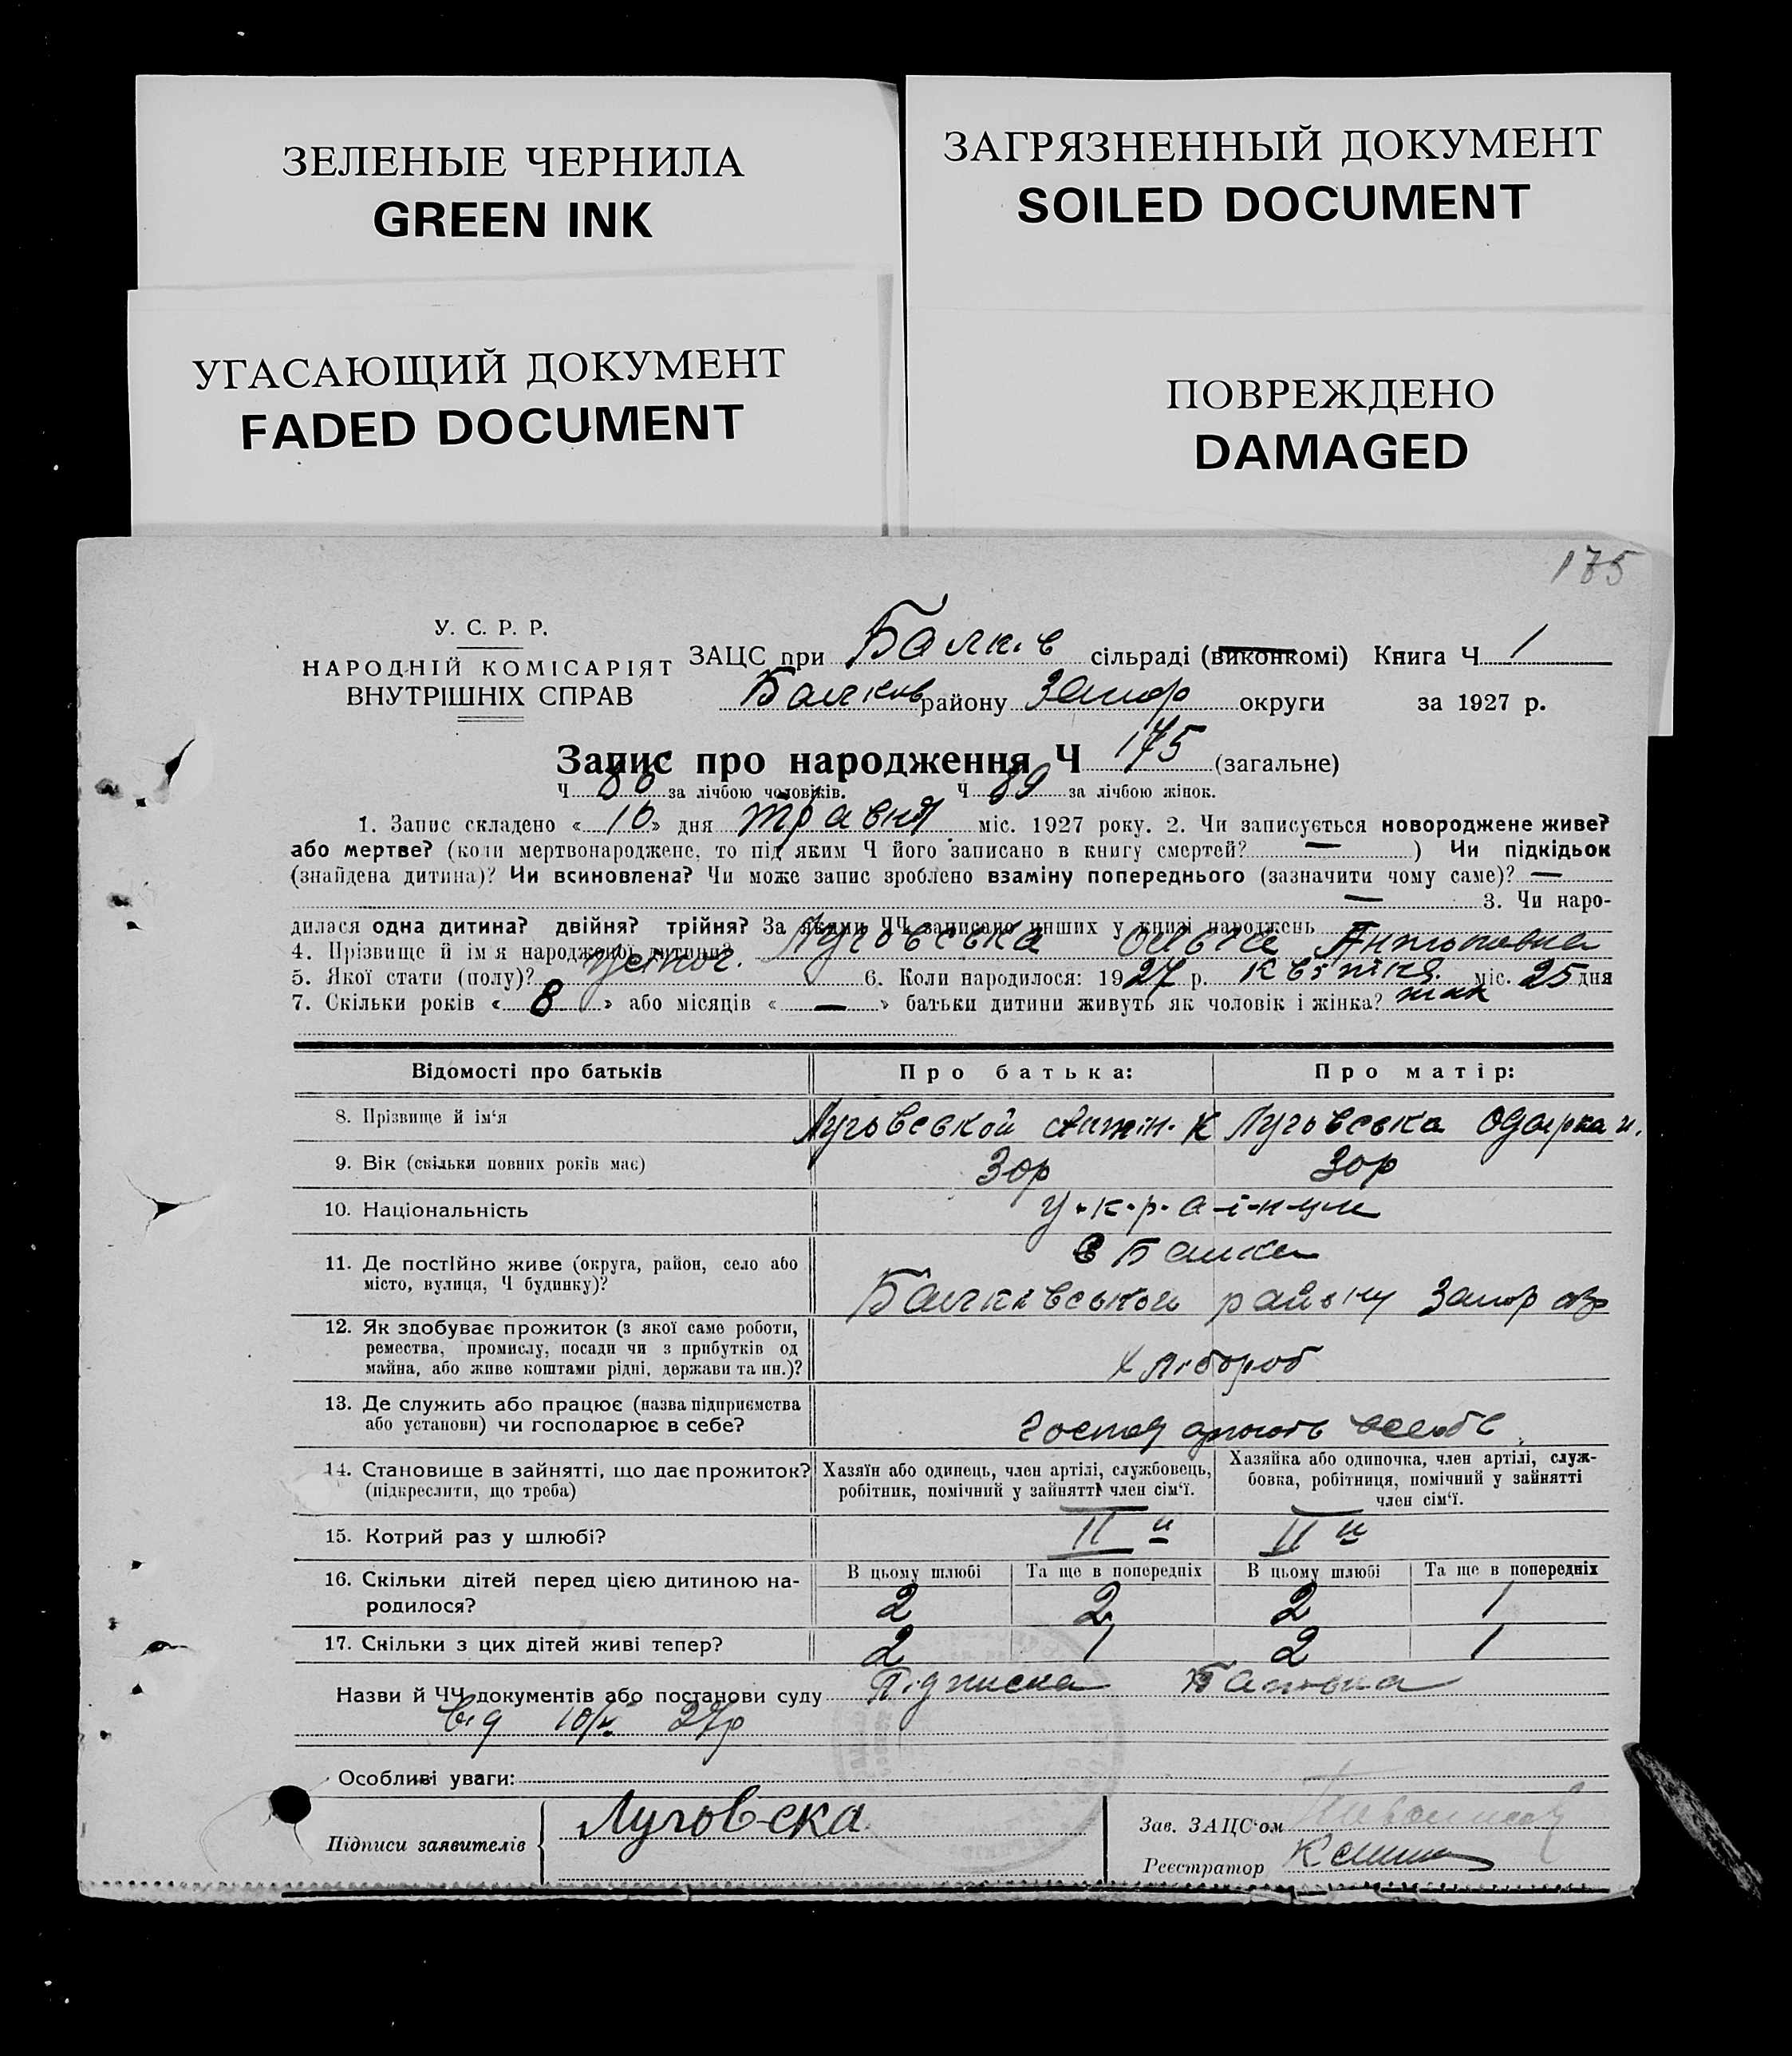 ЗЕЛЕНЫЕ ЧЕРНИЛА
GREEN INK
ЗАГРЯЗНЕННЫЙ ДОКУМЕНТ
SOILED DOCUMENT
УГАСАЮЩИЙ ДОКУМЕНТ
FADED DOCUMENT
ПОВРЕЖДЕНО
DAMAGED
175
У. С. Р. Р.
НАРОДНІЙ КОМІСАРІЯТ
ВНУТРІШНІХ СПРАВ
ЗАЦС при Балків сільраді (виконкомі) Книга Ч 1
Балків району Запор округи за 1927 р.
Запис про народження Ч 175 (загальне)
Ч 86 за лічбою чоловіків. Ч 89 за лічбою жінок.
1. Запис складено « 10 » дня травня міс. 1927 року. 2. Чи записується новороджене живе?
або мертве? (коли мертвонароджене, то під яким Ч його записано в книгу смертей? — ) Чи підкідьок
(знайдена дитина)? Чи всиновлена? Чи може запис зроблено взаміну попереднього (зазначити чому саме)? —
— 3. Чи наро-
дилася одна дитина? двійня? трійня? За якими ЧЧ записано инших у книзі народжень
4. Прізвище й ім'я народженої дитини? Луговська Ольга Антоновна
5. Якої стати (полу)? жіноч. 6. Коли народилося: 1927 р. квітня міс. 25 дня
7. Скільки років « 8 » або місяців « — » батьки дитини живуть як чоловік і жінка? так
Відомості про батьків Про батька: Про матір:
8. Прізвище й ім'я Луговской Антін. К Луговська Одарка и.
9. Вік (скільки повних років має) 30р 30р
10. Національність у-к-р-а-ї-н-ци
11. Де постійно живе (округа, район, село або
місто, вулиця, Ч будинку)?
с Балки
Балківськой району Запор окр
12. Як здобуває прожиток (з якої саме роботи,
ремества, промислу, посади чи з прибутків од
майна, або живе коштами рідні, держави та ин.)?
хлібороб
13. Де служить або працює (назва підприємства
або установи) чи господарює в себе?
господарюють
14. Становище в зайнятті, що дає прожиток?
(підкреслити, що треба)
Хазяїн або одинець, член артілі, службовець,
робітник, помічний у зайнятті член сім'ї.
Хазяйка або одиночка, член артілі, служ-
бовка, робітниця, помічний у зайнятті
член сім'ї.
15. Котрий раз у шлюбі? II й II й
16. Скільки дітей перед цією дитиною на-
родилося?
В цьому шлюбі Та ще в попередніх В цьому шлюбі Та ще в попередніх
2 2 2 1
17. Скільки з цих дітей живі тепер? 2 1 2 1
Назви й ЧЧ документів або постанови суду Підписка Батька
від 10/V 27р
Особливі уваги:
Підписи заявителів Луговска
Зав. ЗАЦС'ом
Реєстратор